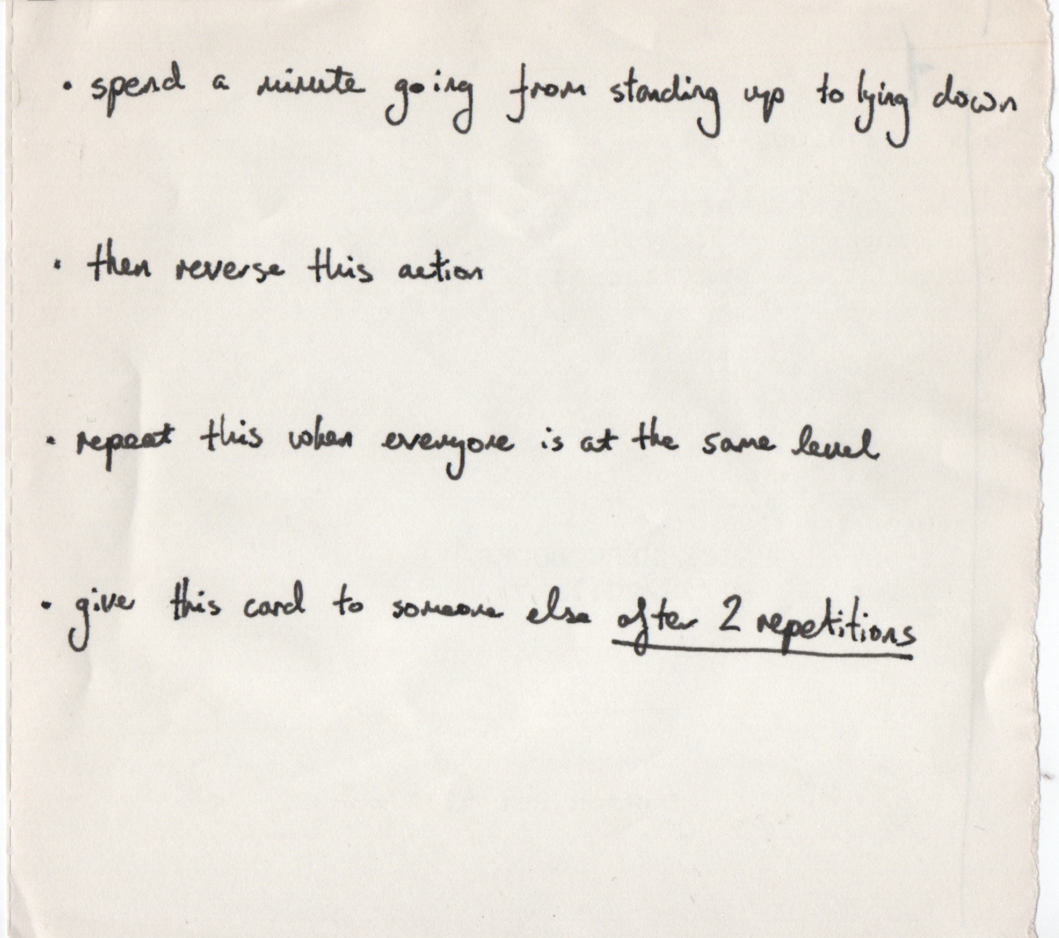 · spend a minute going from standing up to lying down
· then reverse this action
· repeat this when everyone is at the same level
· give this card to someone else after 2 repetitions